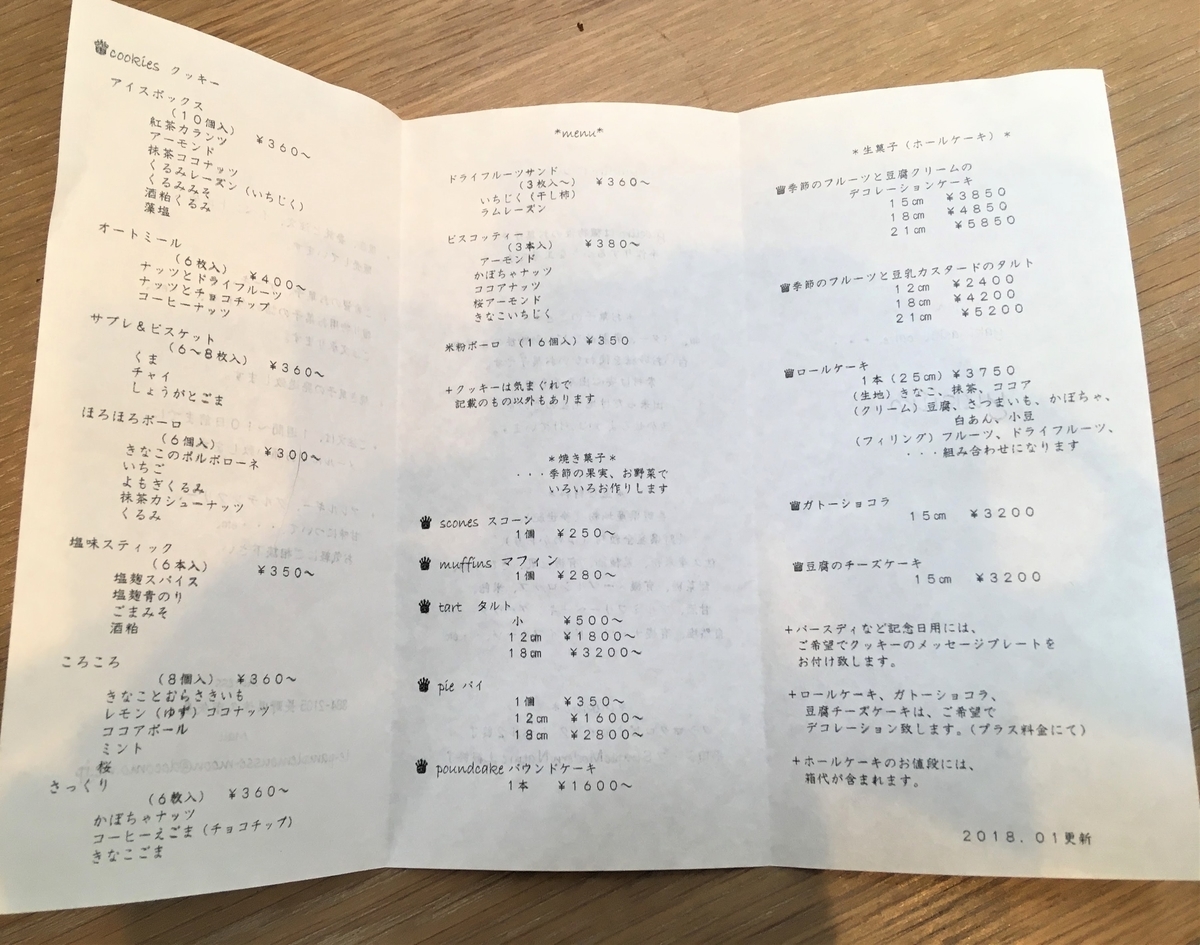 cookies クッキー
アイスボックス
(10個入) ¥360～
紅茶カランツ
アーモンド
抹茶ココナッツ
くるみレーズン(いちじく)
くるみみそ
酒粕くるみ
藻塩
オートミール
(6枚入) ¥400～
ナッツとドライフルーツ
ナッツとチョコチップ
コーヒーナッツ
サブレ&ビスケット
(6～8枚入) ¥360～
くま
チャイ
しょうがとごま
ほろほろボーロ
(6個入) ¥300～
きなこのポルボローネ
いちご
よもぎくるみ
抹茶カシューナッツ
くるみ
塩味スティック
(6本入) ¥350～
塩麹スパイス
塩麹青のり
ごまみそ
酒粕
ころころ
(8個入) ¥360～
きなことむらさきいも
レモン(ゆず)ココナッツ
ココアボール
ミント
桜
さっくり
(6枚入) ¥360～
かぼちゃナッツ
コーヒーえごま(チョコチップ)
きなこごま
*menu*
ドライフルーツサンド
(3枚入～) ¥360～
いちじく(干し柿)
ラムレーズン
ビスコッティー
(3本入) ¥380～
アーモンド
かぼちゃナッツ
ココアナッツ
桜アーモンド
きなこいちじく
米粉ボーロ (16個入) ¥350
+クッキーは気まぐれで
記載のもの以外もあります
*焼き菓子*
・・・季節の果実、お野菜で
いろいろお作りします
scones スコーン
1個 ¥250～
muffins マフィン
1個 ¥280～
tart タルト
小 ¥500～
12㎝ ¥1800～
18㎝ ¥3200～
pie パイ
1個 ¥350～
12㎝ ¥1600～
18㎝ ¥2800～
poundcake パウンドケーキ
1本 ¥1600～
*生菓子(ホールケーキ)*
季節のフルーツと豆腐クリームの
デコレーションケーキ
15㎝ ¥3850
18㎝ ¥4850
21㎝ ¥5850
季節のフルーツと豆乳カスタードのタルト
12㎝ ¥2400
18㎝ ¥4200
21㎝ ¥5200
ロールケーキ
1本(25㎝) ¥3750
(生地)きなこ、抹茶、ココア
(クリーム)豆腐、さつまいも、かぼちゃ、
白あん、小豆
(フィリング)フルーツ、ドライフルーツ、
・・・組み合わせになります
ガトーショコラ
15㎝ ¥3200
豆腐のチーズケーキ
15㎝ ¥3200
+バースディなど記念日用には、
ご希望でクッキーのメッセージプレートを
お付け致します。
+ロールケーキ、ガトーショコラ、
豆腐チーズケーキは、ご希望で
デコレーション致します。(プラス料金にて)
+ホールケーキのお値段には、
箱代が含まれます。
2018.01更新